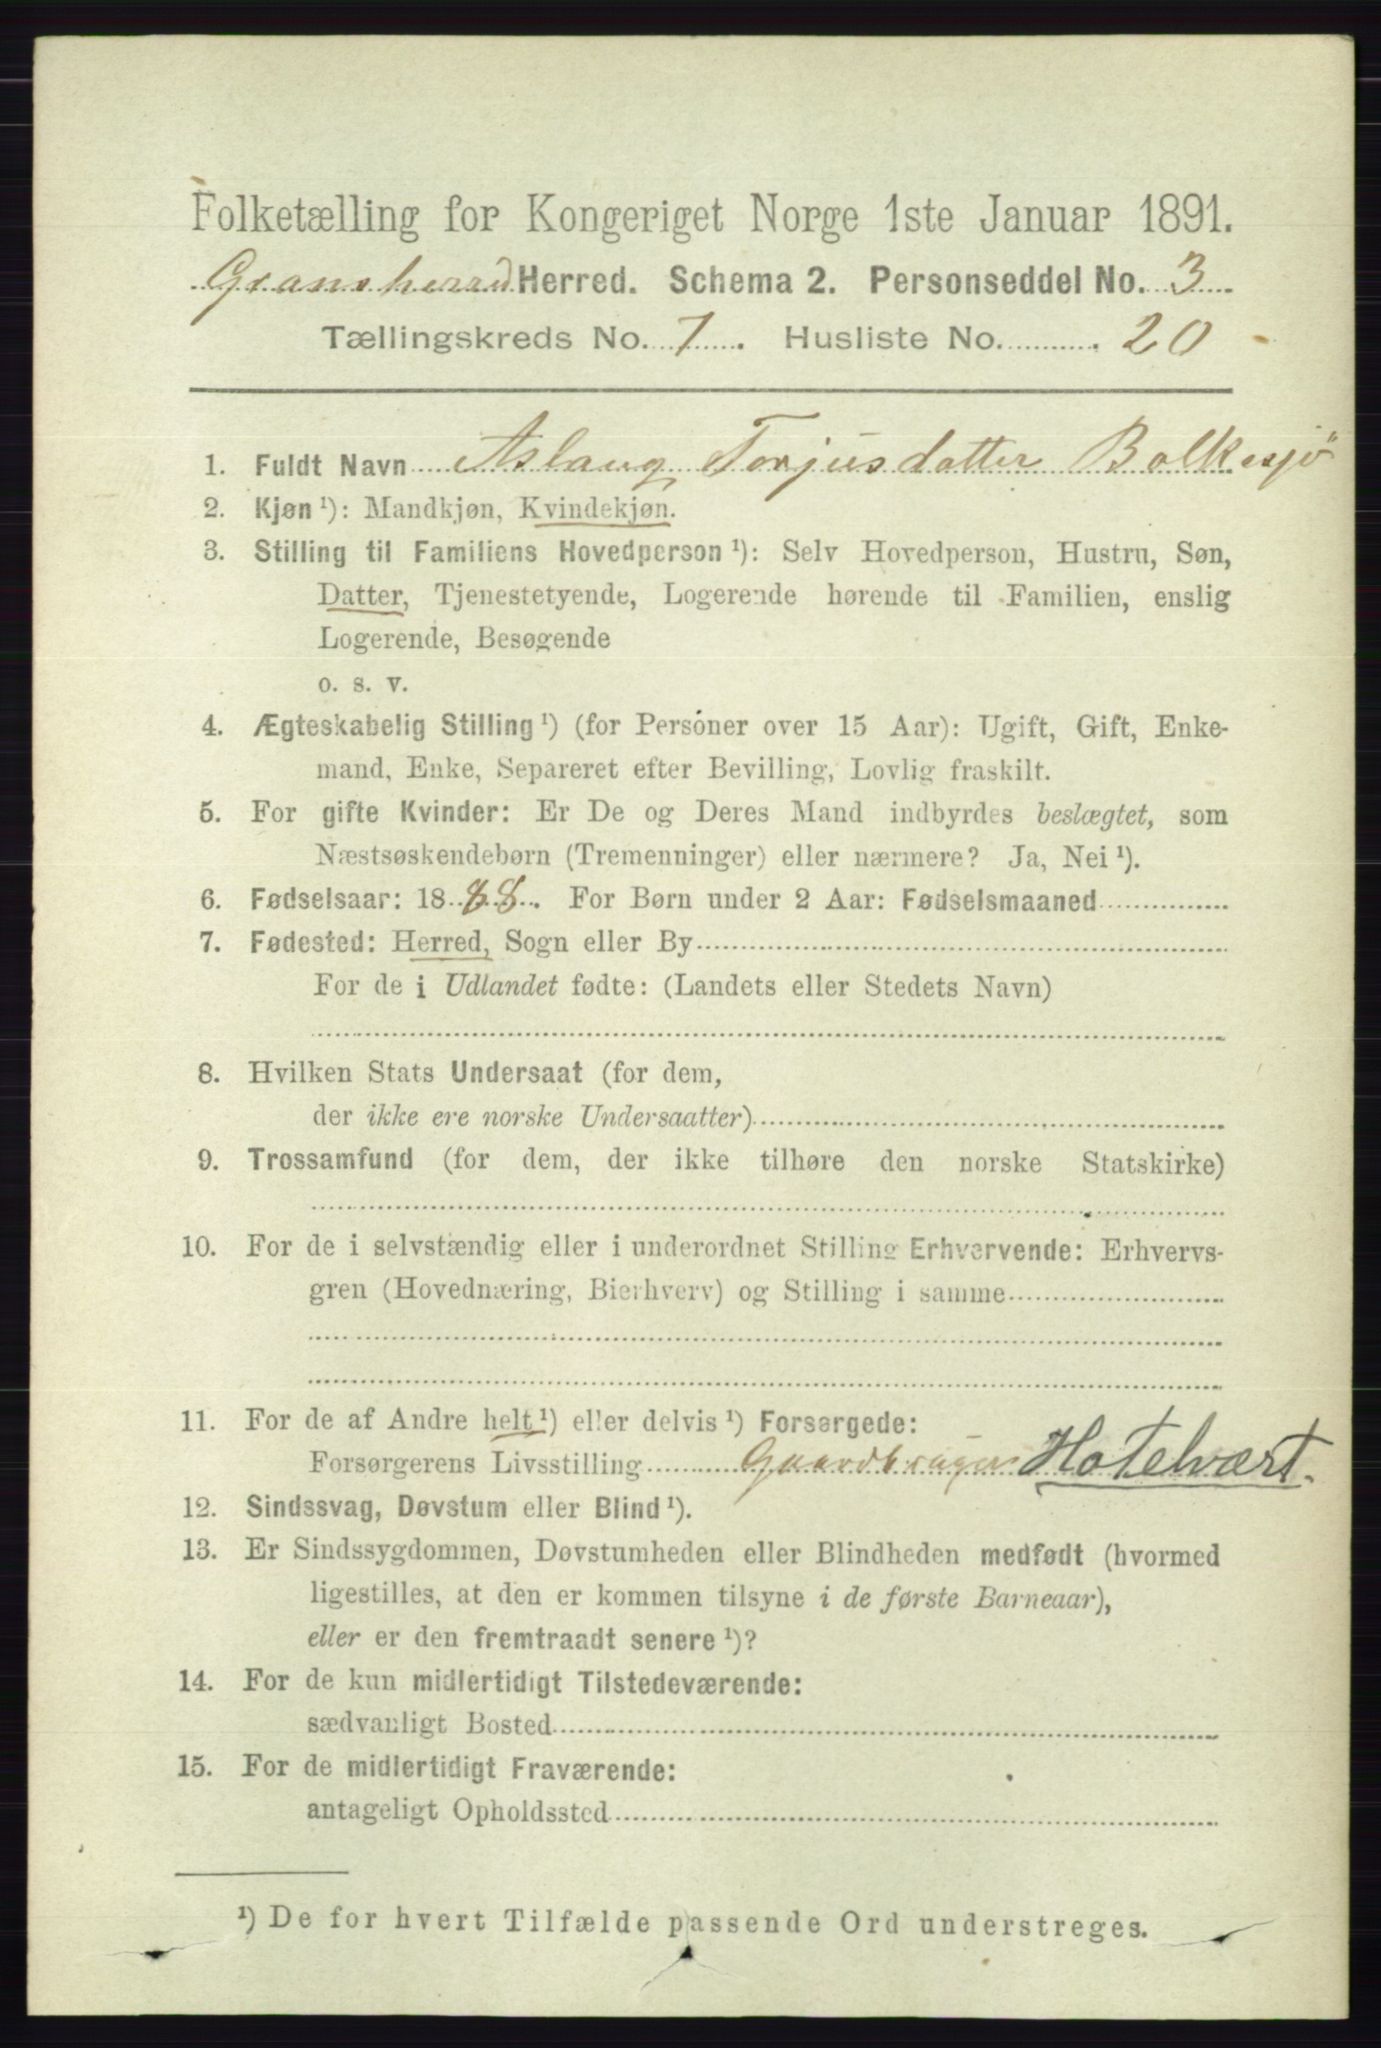 Folketælling for Kongeriget Norge 1ste Januar 1891.
Gransherred Herred. Schema 2. Personseddel No. 3
Tællingskreds No. 7. Husliste No. 20
1. Fuldt Navn Aslaug Torjusdatter Bolkesjö
2. Kjøn ¹): Mandkjøn, Kvindekjøn.
3. Stilling til Familiens Hovedperson ¹): Selv Hovedperson, Hustru, Søn,
Datter, Tjenestetyende, Logerende hørende til Familien, enslig
Logerende, Besøgende
o. s. v.
4. Ægteskabelig Stilling ¹) (for Personer over 15 Aar): Ugift, Gift, Enke-
mand, Enke, Separeret efter Bevilling, Lovlig fraskilt.
5. For gifte Kvinder: Er De og Deres Mand indbyrdes beslægtet, som
Næstsøskendebørn (Tremenninger) eller nærmere? Ja, Nei ¹).
6. Fødselsaar: 1888. For Børn under 2 Aar: Fødselsmaaned
7. Fødested: Herred, Sogn eller By
For de i Udlandet fødte: (Landets eller Stedets Navn)
8. Hvilken Stats Undersaat (for dem,
der ikke ere norske Undersaatter)
9. Trossamfund (for dem, der ikke tilhøre den norske Statskirke)
10. For de i selvstændig eller i underordnet Stilling Erhvervende: Erhvervs-
gren (Hovednæring, Bierhverv) og Stilling i samme
11. For de af Andre helt ¹) eller delvis ¹) Forsørgede:
Forsørgerens Livsstilling Gaardbruger Hotelvært.
12. Sindssvag, Døvstum eller Blind ¹).
13. Er Sindssygdommen, Døvstumheden eller Blindheden medfødt (hvormed
ligestilles, at den er kommen tilsyne i de første Barneaar),
eller er den fremtraadt senere ¹)?
14. For de kun midlertidigt Tilstedeværende:
sædvanligt Bosted
15. For de midlertidigt Fraværende:
antageligt Opholdssted
¹) De for hvert Tilfælde passende Ord understreges.